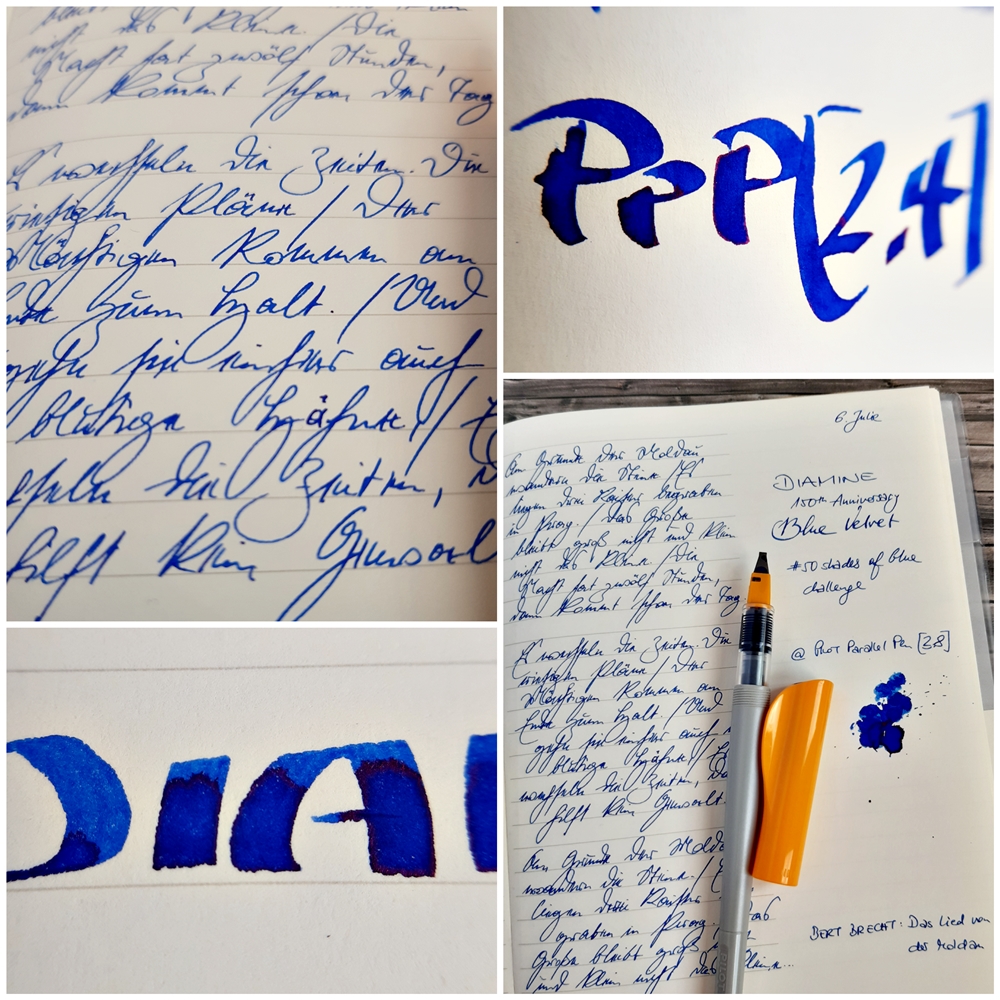 nicht das Kleine. / Die
Nacht hat zwölf Stunden,
dann kommt schon der Tag
Es wechseln die Zeiten. Die
riesigen Pläne / Der
Mächtigen kommen am
Ende zum Halt. / Und
gehn sie einher auch
blutige Hähne /
wechseln die Zeiten,
hilft kein Gewal
PPP[2.4]
DIA
6. Julie
Am Grunde der Moldau
wandern die Steine / Es
liegen drei Kaiser begraben
in Prag. / Das Große
bleibt groß nicht und klein
nicht das Kleine. / Die
Nacht hat zwölf Stunden,
dann kommt schon der Tag.
Es wechseln die Zeiten. Die
riesigen Pläne / Der
Mächtigen kommen am
Ende zum Halt. / Und
gehn sie einher auch
blutige Hähne /
wechseln die Zeiten, da
hilft kein Gewalt.
Am Grunde der Molda
wandern die Steine. /
liegen drei Kaiser
graben in Prag. Das
Große bleibt groß
und klein nicht das Kleine...
DIAMINE
150th Anniversary
Blue Velvet
#50 shades of blue
challenge
@ Pilot Parallel Pen [3.8]
BERT BRECHT: Das Lied von
der Moldau